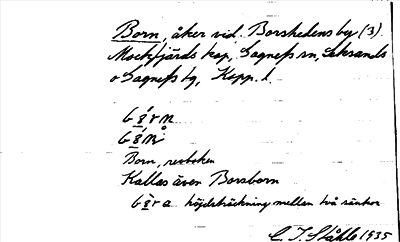 Born, åker vid Borshedens by (3).
Mockfjärds kap., Gagnefs sn, Leksands
o Gagnefs tg, Kopp. l.
Born,
Kallas även Borsborn
höjdsträckning mellan två sänkor
C. I. Ståhle 1935